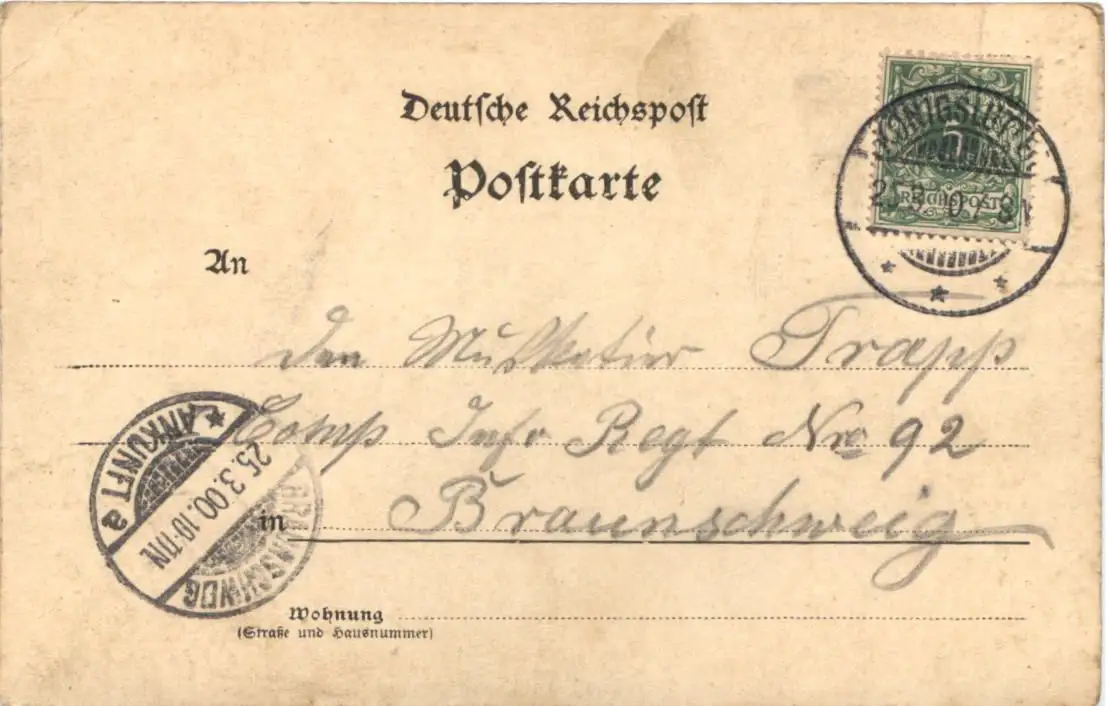 Deutsche Reichspost
Postkarte
5
REICHSPOST
25.3.
An
den Musketier Trapp
Comp Inf. Regt No 92
in Braunschweig
ANKUNFT a
25.3.00.10-11N.
BRAUNSCHWEIG
Wohnung
(Straße und Hausnummer)